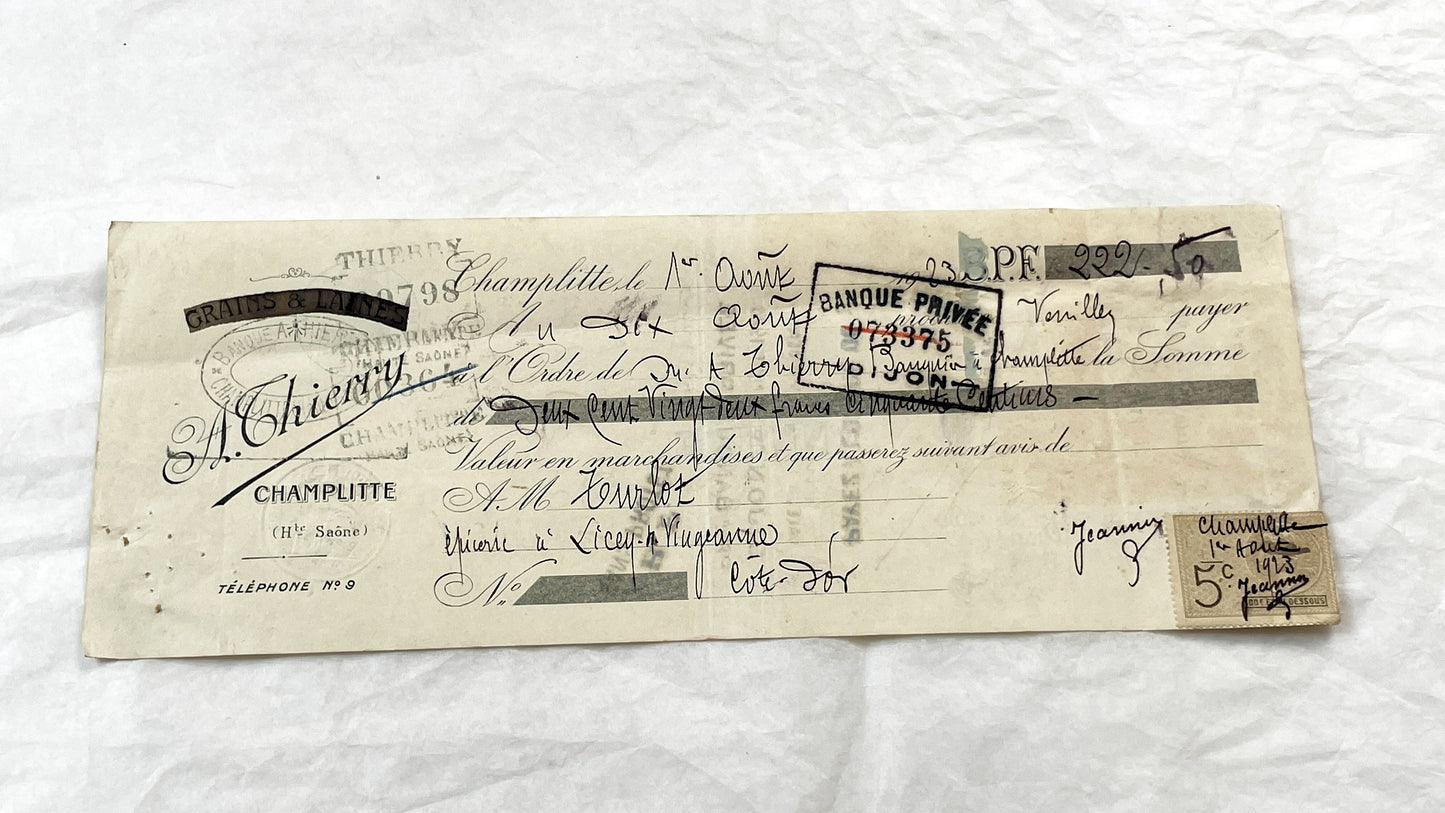 THIERRY
GRAINS & LAINES
A. Thierry
CHAMPLITTE
(Hte Saône)
TÉLÉPHONE No 9
Champlitte, le 1er Août 1923 B.P.F. 222.50
Au Dix Août Veuillez payer
BANQUE PRIVÉE
073375
DIJON
à l'Ordre de A Thierry Banquier à Champlitte la Somme
de Deux Cent Vingt deux francs Cinquante Centimes
Valeur en marchandises et que passerez suivant avis de
A M Turlot
épicerie à Licey-s-Vingeanne
Côte-d'or
No
Jeannin
Champlitte
1er Aout
1923
Jeannin
5c